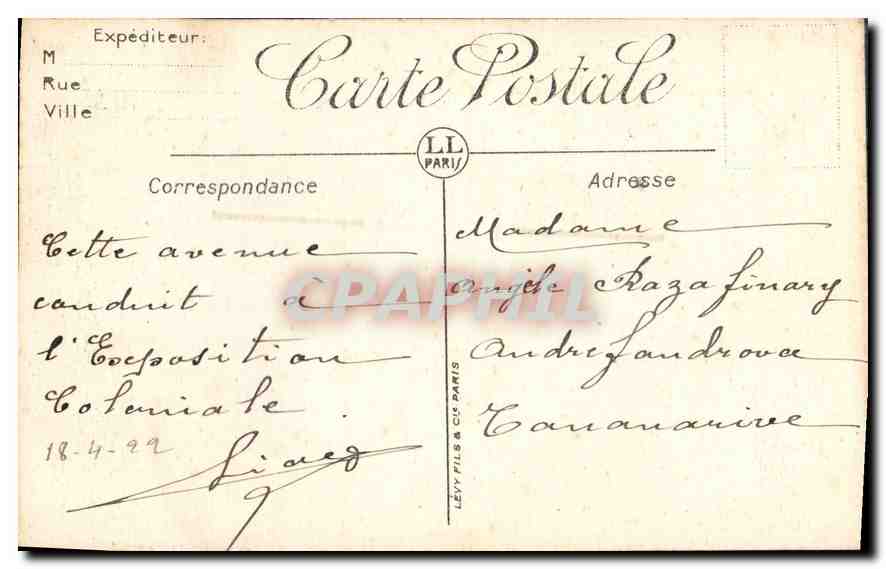 Expéditeur:
M
Rue
Ville
Carte Postale
LL
PARIS
Correspondance
Adresse
Cette avenue
conduit à
l'Exposition
Coloniale
18-4-22
Madame
Angèle Razafinary
Andrefandrova
Tananarive
LÉVY FILS & Cie PARIS
CPAPHIL